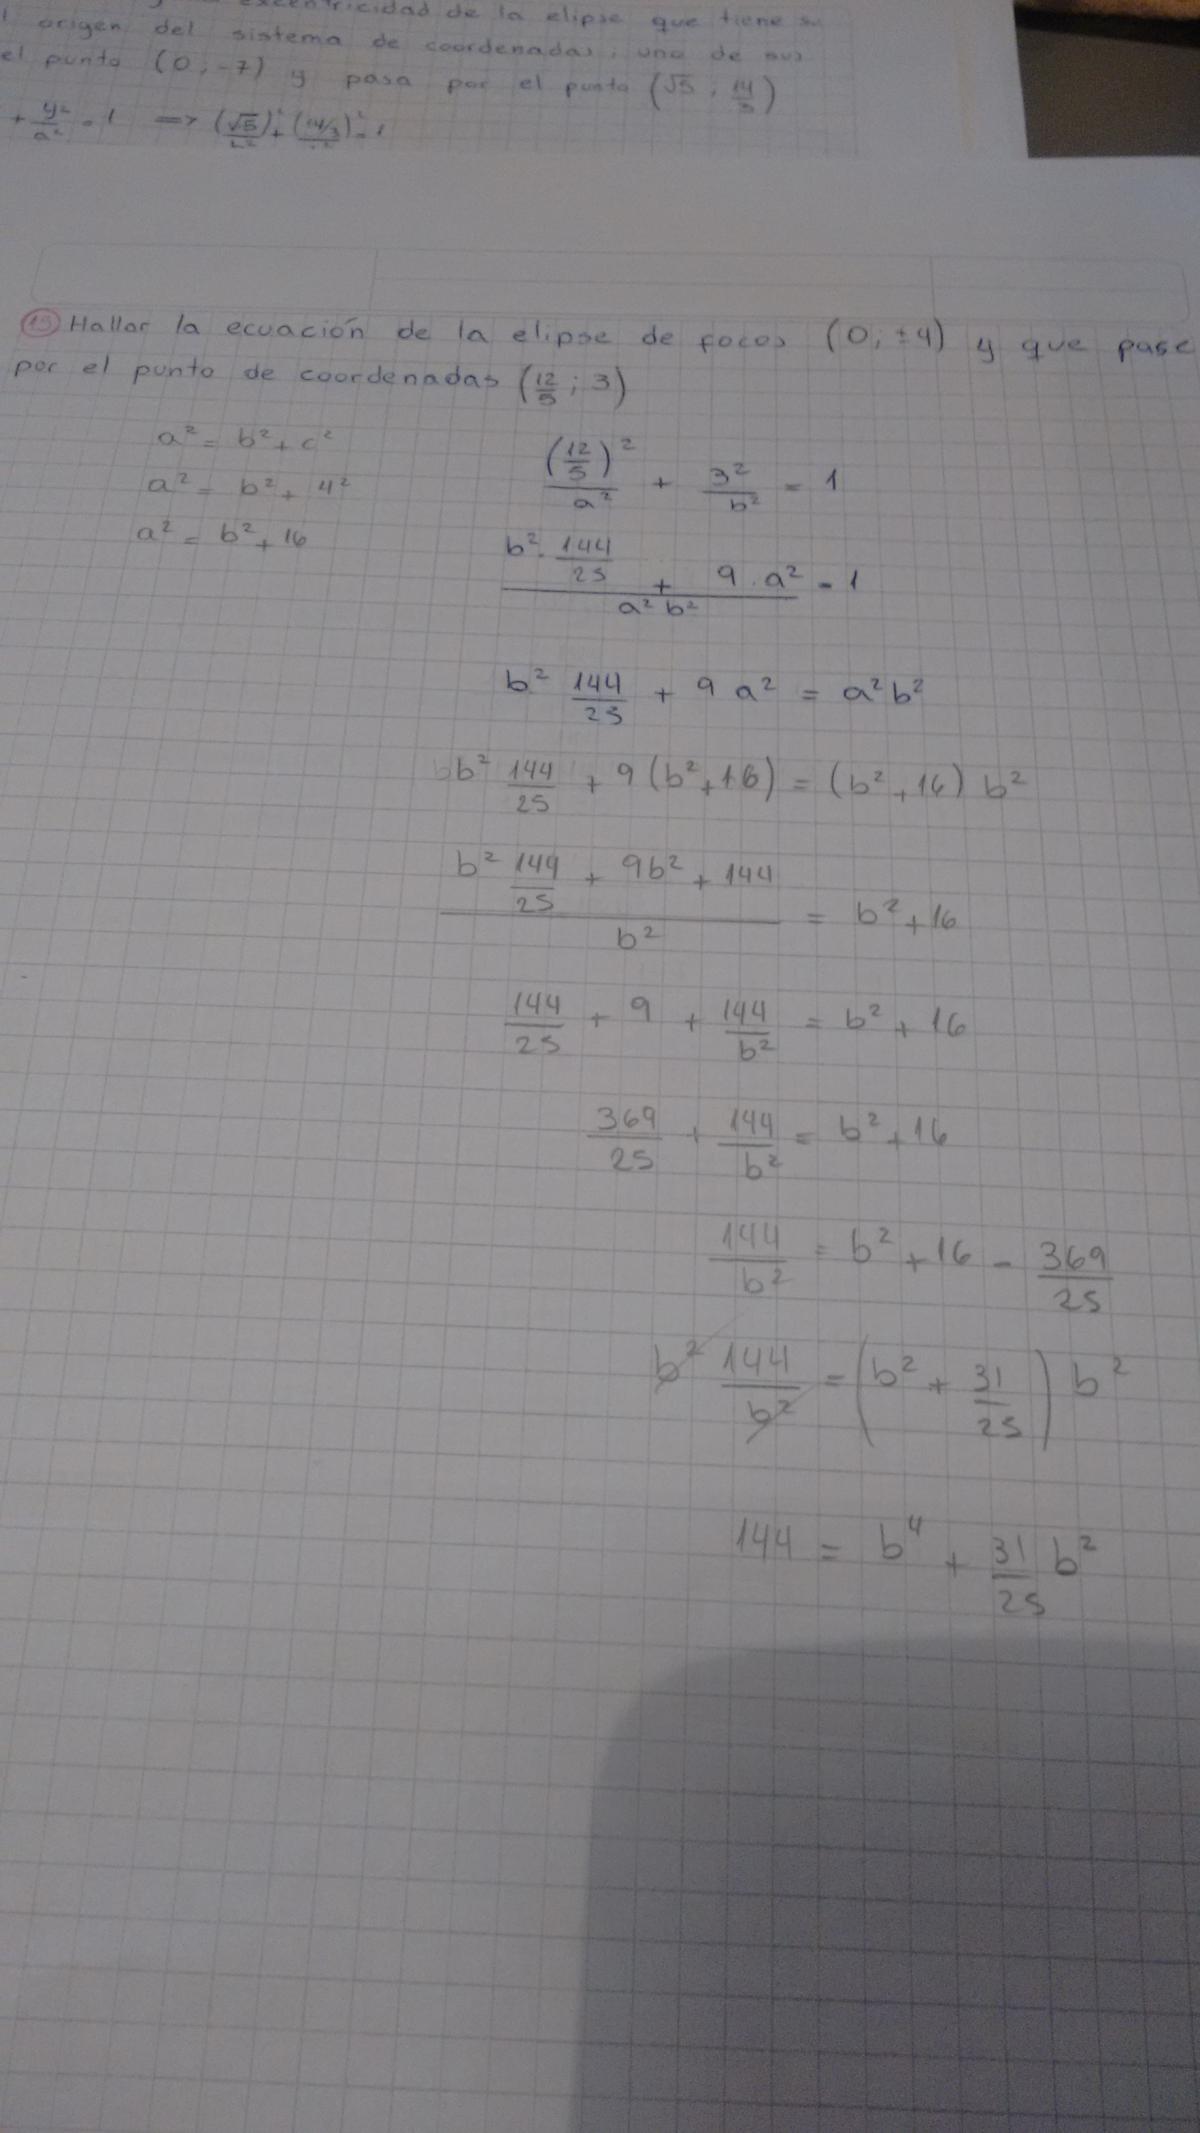 excentricidad de la elipse que tiene su
origen del sistema de coordenadas, uno de sus
el punto (0,-7) y pasa por el punto (√5 ; 14/3)
+ y²/a² = 1 => (√5)²/b² + (14/3)²/a² = 1
15 Hallar la ecuación de la elipse de focos (0; ±4) y que pase
por el punto de coordenadas (12/5 ; 3)
a² = b² + c²
a² = b² + 4²
a² = b² + 16
(12/5)²/a² + 3²/b² = 1
(b² · 144/25 + 9 · a²)/(a² b²) = 1
b² 144/25 + 9 a² = a² b²
b² 144/25 + 9 (b² + 16) = (b² + 16) b²
(b² 144/25 + 9b² + 144)/b² = b² + 16
144/25 + 9 + 144/b² = b² + 16
369/25 + 144/b² = b² + 16
144/b² = b² + 16 - 369/25
b² 144/b² = (b² + 31/25) b²
144 = b⁴ + 31/25 b²